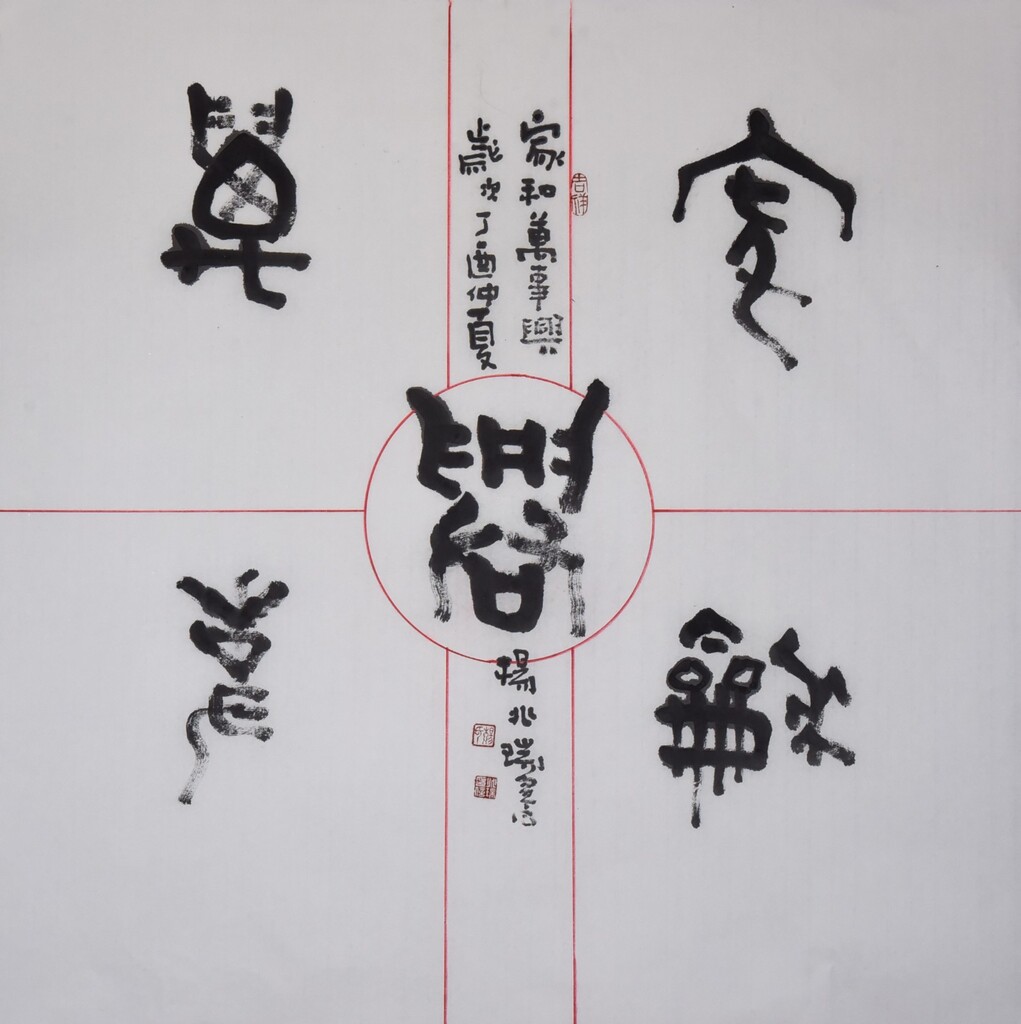 家
龢
萬
事
興
家和萬事興
歲次丁酉仲夏
吉祥
楊兆瑞書